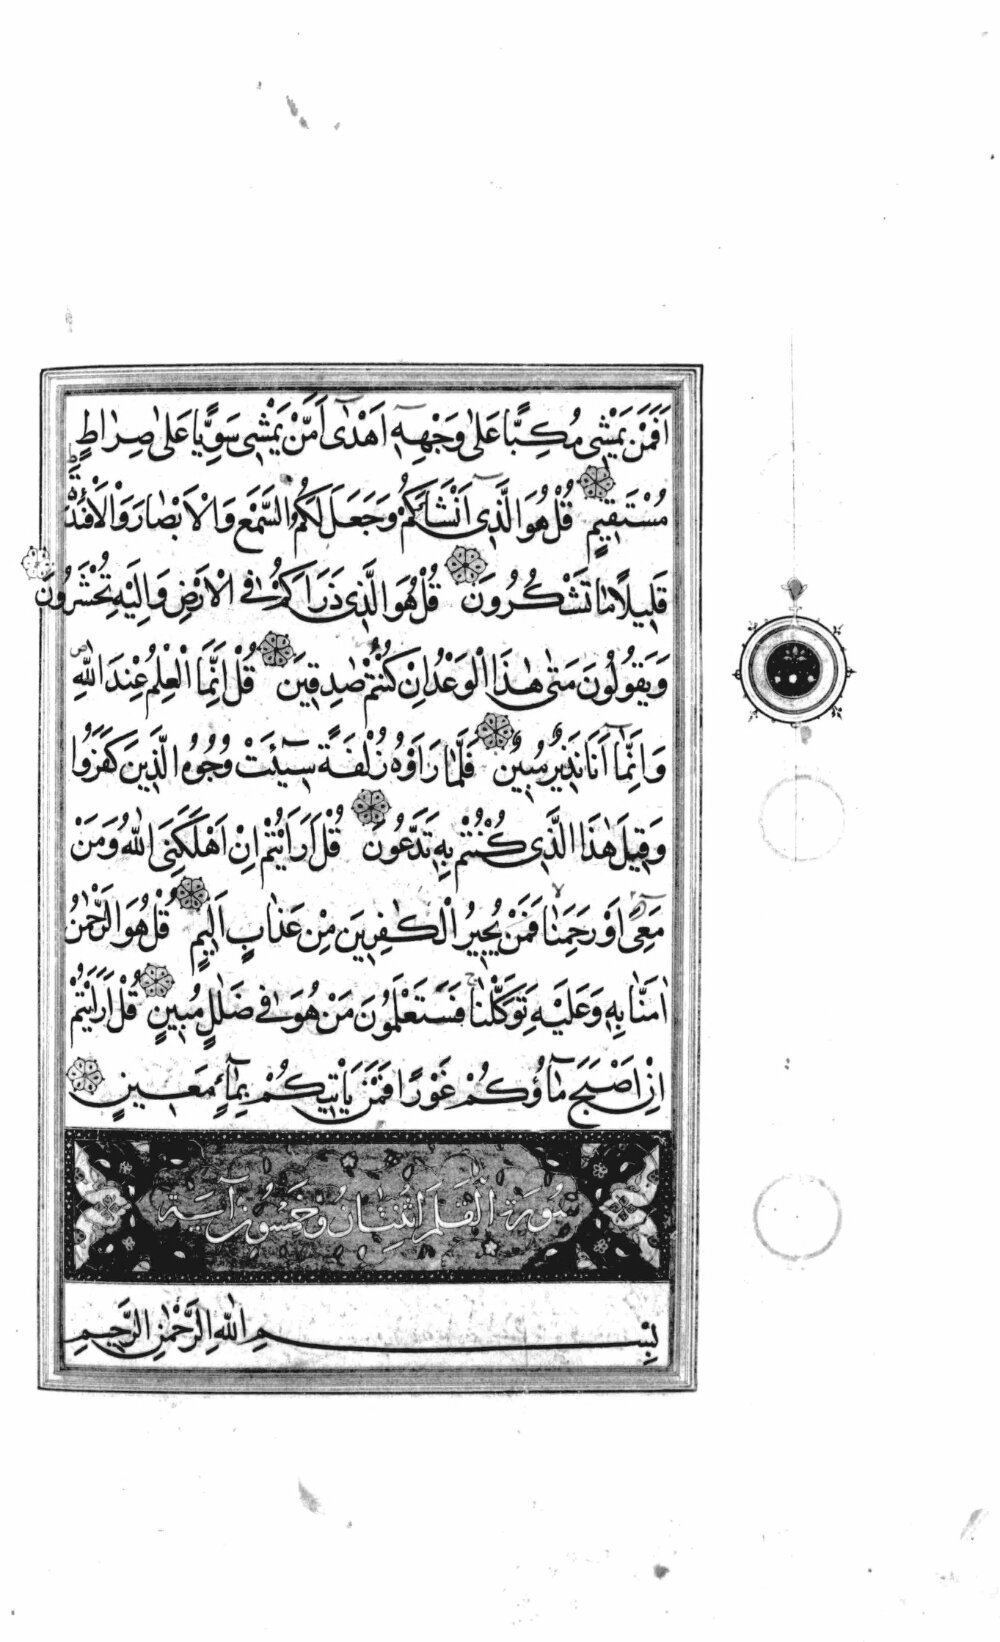 اَفَمَنْ يَمْشِى مُكِبًّا عَلٰى وَجْهِهٖٓ اَهْدٰٓى اَمَّنْ يَمْشِى سَوِيًّا عَلٰى صِرَاطٍ
مُسْتَقِيمٍ قُلْ هُوَ الَّذِٓى اَنْشَاَكُمْ وَجَعَلَ لَكُمُ السَّمْعَ وَالْاَبْصَارَ وَالْاَفْئِدَةَ
قَلِيلًا مَا تَشْكُرُونَ قُلْ هُوَ الَّذِى ذَرَاَكُمْ فِى الْاَرْضِ وَاِلَيْهِ تُحْشَرُونَ
وَيَقُولُونَ مَتٰى هٰذَا الْوَعْدُ اِنْ كُنْتُمْ صٰدِقِينَ قُلْ اِنَّمَا الْعِلْمُ عِنْدَ اللّٰهِ
وَاِنَّمَٓا اَنَا نَذِيرٌ مُبِينٌ فَلَمَّا رَاَوْهُ زُلْفَةً سِٓيئَتْ وُجُوهُ الَّذِينَ كَفَرُوا
وَقِيلَ هٰذَا الَّذِى كُنْتُمْ بِهٖ تَدَّعُونَ قُلْ اَرَاَيْتُمْ اِنْ اَهْلَكَنِىَ اللّٰهُ وَمَنْ
مَعِىَ اَوْ رَحِمَنَا فَمَنْ يُجِيرُ الْكٰفِرِينَ مِنْ عَذَابٍ اَلِيمٍ قُلْ هُوَ الرَّحْمٰنُ
اٰمَنَّا بِهٖ وَعَلَيْهِ تَوَكَّلْنَا فَسَتَعْلَمُونَ مَنْ هُوَ فِى ضَلٰلٍ مُبِينٍ قُلْ اَرَاَيْتُمْ
اِنْ اَصْبَحَ مَٓاؤُكُمْ غَوْرًا فَمَنْ يَاْتِيكُمْ بِمَٓاءٍ مَعِينٍ
سُورَةُ الْقَلَمِ اثْنَتَانِ وَخَمْسُونَ آيَة
بِسْمِ اللّٰهِ الرَّحْمٰنِ الرَّحِيمِ